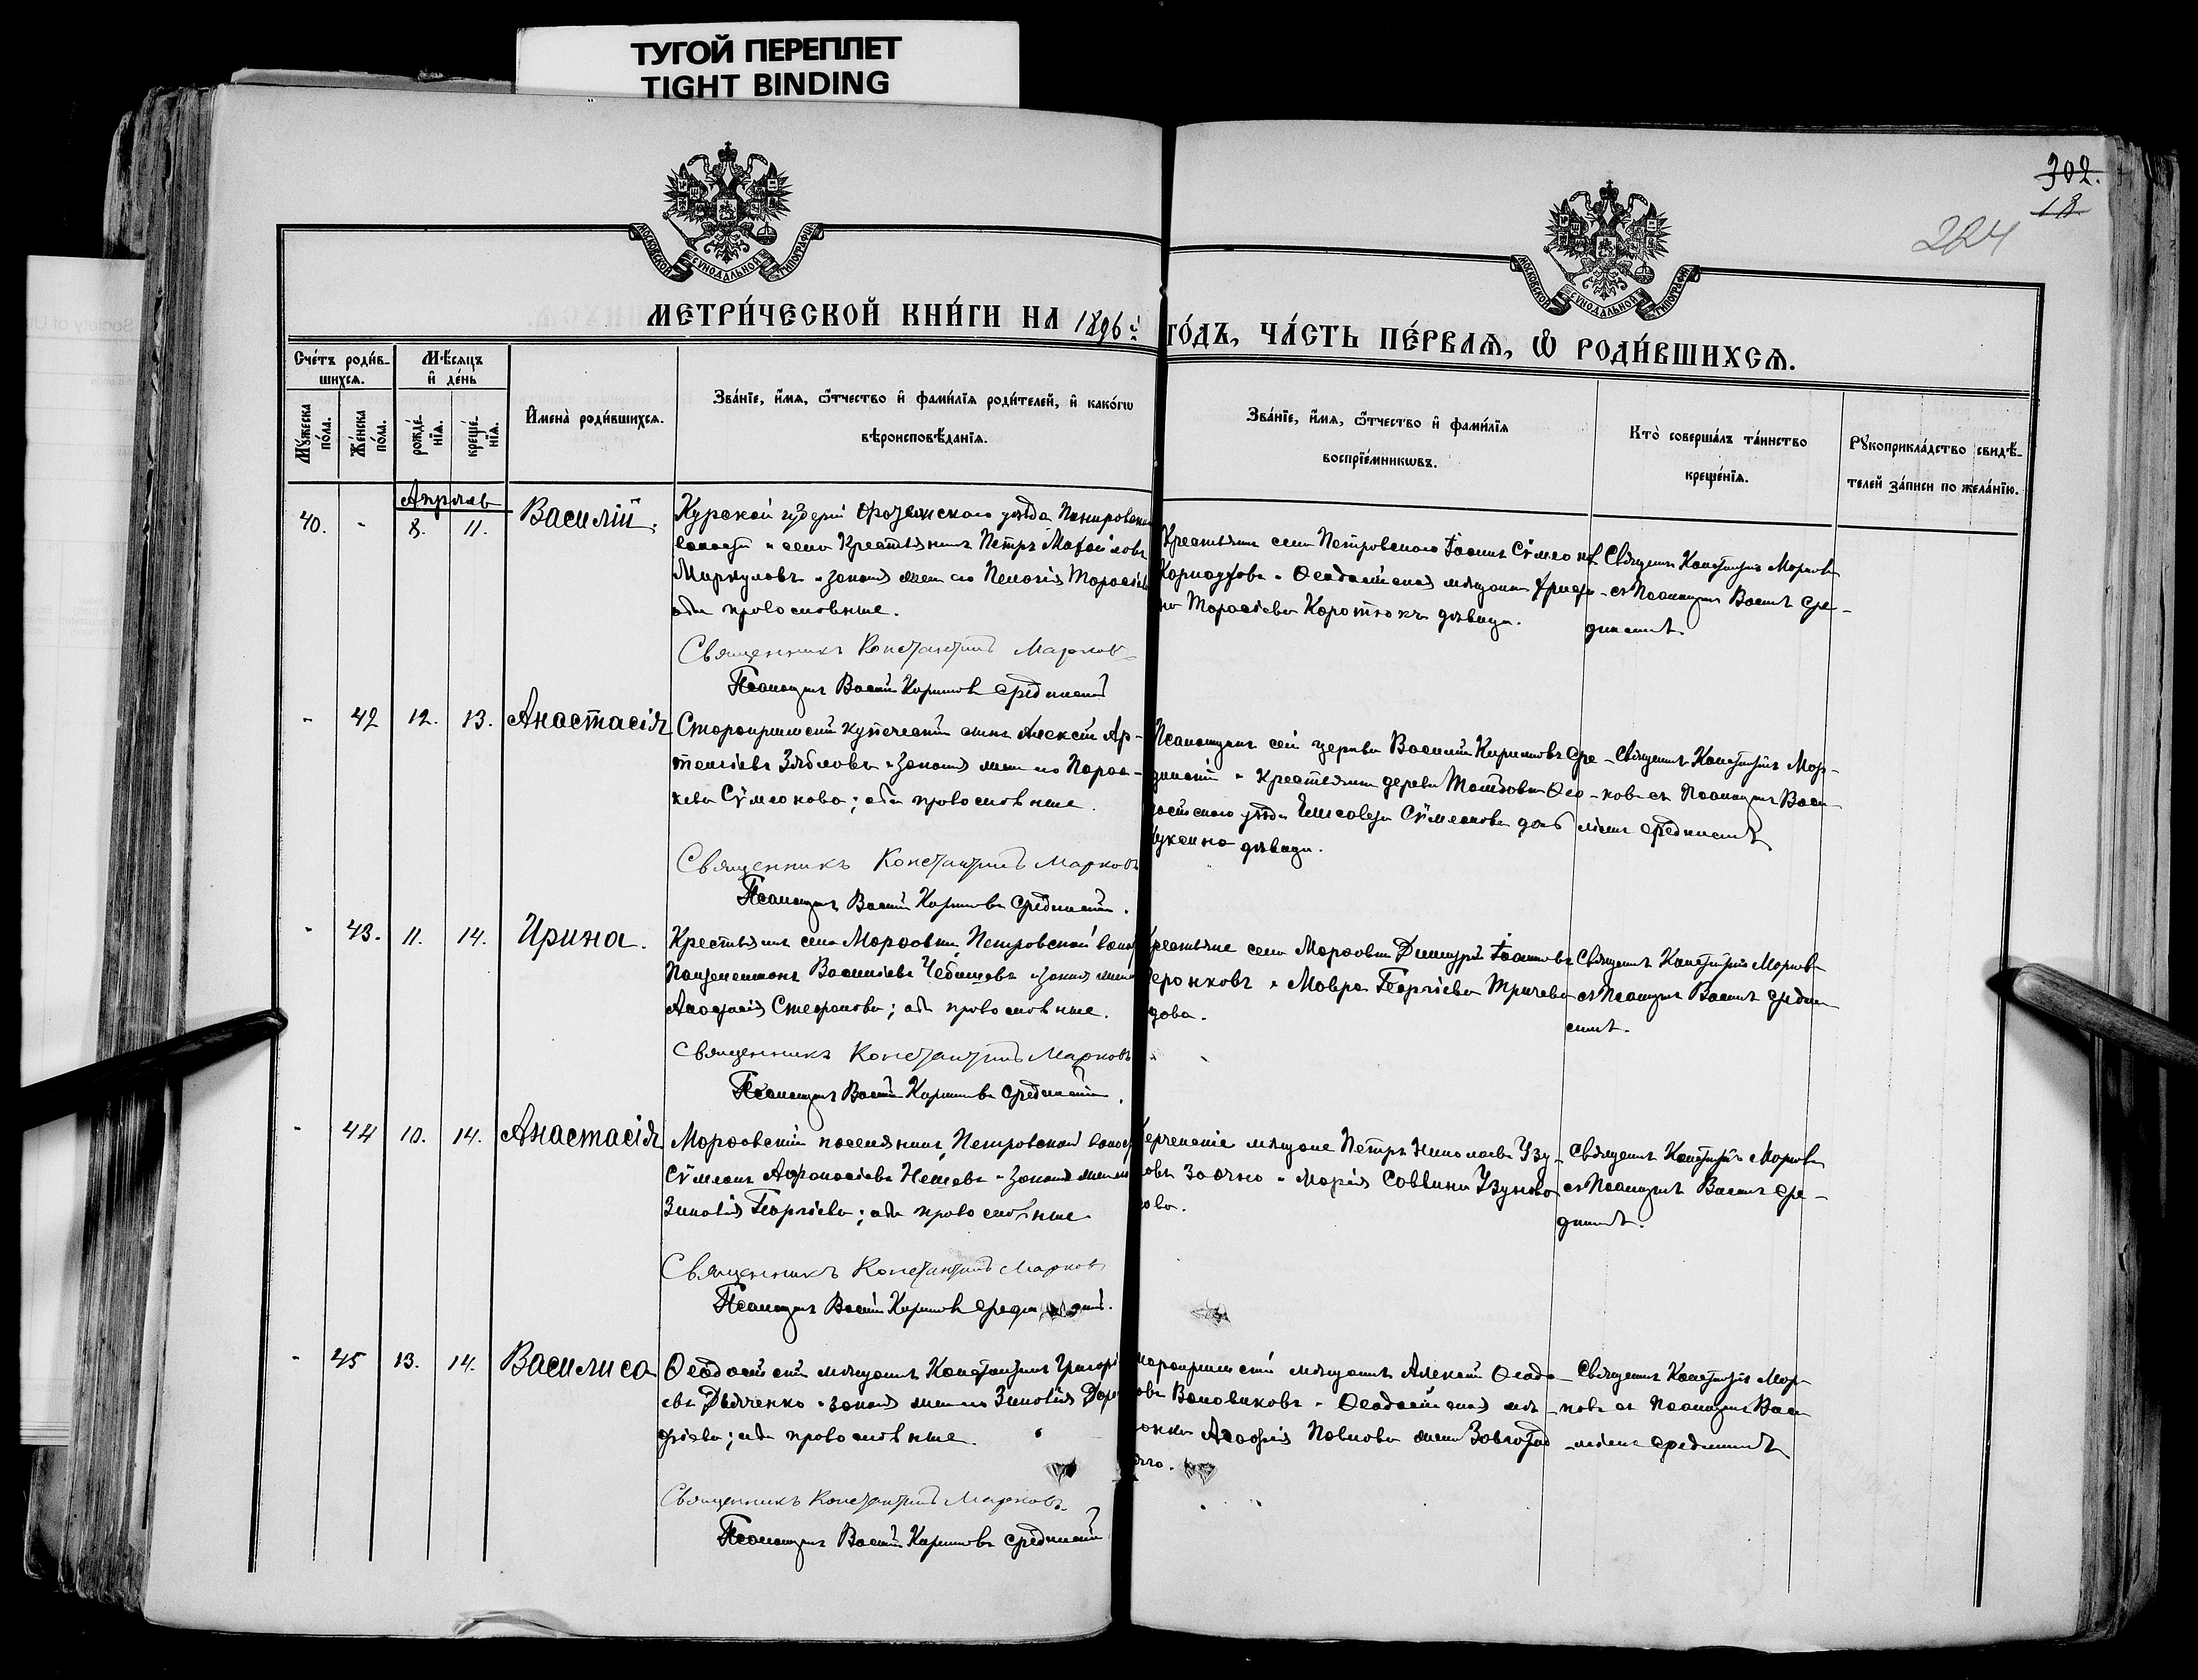 ТУГОЙ ПЕРЕПЛЕТ
TIGHT BINDING
302.
18
224
МОСКОВСКОЙ СѴНОДАЛЬНОЙ ТИПОГРАФІИ
МОСКОВСКОЙ СѴНОДАЛЬНОЙ ТИПОГРАФІИ
МЕТРИ́ЧЕСКОЙ КНИ́ГИ НА 1896 й ГО́ДЪ, ЧА́СТЬ ПЕ́РВАѦ, Ѡ҆ РОДИ́ВШИХСѦ.
Сче́тъ роди́в-
шихсѧ.
Мꙋ́жеска по́ла.
Же́нска по́ла.
Мѣ́сѧцъ
и҆ де́нь
рожде́-
нїѧ.
креще́-
нїѧ.
И҆мена̀ роди́вшихсѧ.
Зва́нїе, и҆́мѧ, ѻ҆́тчество и҆ фами́лїѧ роди́телей, и҆ како́гѡ
вѣроисповѣ́данїѧ.
Зва́нїе, и҆́мѧ, ѻ҆́тчество и҆ фами́лїѧ
воспрїе́мникѡвъ.
Кто̀ соверша́лъ та́инство
креще́нїѧ.
Рꙋкоприкла́дство свидѣ́-
телей за́писи по жела́нїю.
Апрѣль
40. - 8. 11. Василій.
Курской губерніи уѣзда
волости и села Крестьянинъ Петръ
Меркуловъ и законная жена его Пелагія Тарасіева
оба православные.
Священникъ Константинъ Марковъ
Псаломщикъ Василій Кириловъ Срединскій
Крестьянинъ села Петровскаго Іоаннъ Сѵмеоновъ
и Ѳеодосійская мѣщанка
Тарасіева дѣвица.
Священникъ Константинъ Марковъ
съ Псаломщикомъ Василіемъ Сре-
динскимъ.
- 42 12. 13. Анастасія
Старокрымскій купеческій сынъ Алексій Ар-
темьевъ Зябловъ и законная жена его Парас-
кева Сѵмеонова; оба православные.
Священникъ Константинъ Марковъ
Псаломщикъ Василій Кириловъ Срединскій.
Псаломщикъ сей церкви Василій Кириловъ Сре-
динскій и Крестьянина деревни Ѳео-
досійскаго уѣзда Елисавета Сѵмеонова дочь
дѣвица.
Священникъ Константинъ Мар-
ковъ съ Псаломщикомъ Васи-
ліемъ Срединскимъ
- 43. 11. 14. Ирина.
Крестьянинъ села Марфовки, Петровской волости
Пантелеимонъ Василіевъ и законная жена его
Анастасія Стефанова; оба православные.
Священникъ Константинъ Марковъ
Псаломщикъ Василій Кириловъ Срединскій.
Крестьяне села Марфовки Димитрій Іоанновъ
и Мавра Георгіева
вдова.
Священникъ Константинъ Марковъ
съ Псаломщикомъ Василіемъ Средин-
скимъ.
- 44 10. 14. Анастасія
Марфовскій поселянинъ, Петровской волости
Сѵмеонъ Аѳанасіевъ и законная жена его
Зиновія Георгіева; оба православные
Священникъ Константинъ Марковъ
Псаломщикъ Василій Кириловъ Срединскій.
Керченскіе мѣщане Петръ Николаевъ Узу-
новъ заочно и Марія Саввина Узуно-
ва.
Священникъ Константинъ Марковъ
съ Псаломщикомъ Василіемъ Сре-
динскимъ.
- 45 13. 14. Василиса
Ѳеодосійскій мѣщанинъ Константинъ Григорі-
евъ Дьяченко и законная жена его Зиновія
оба православные.
Священникъ Константинъ Марковъ
Псаломщикъ Василій Кириловъ Срединскій
Старокрымскій мѣщанинъ Алексій Ѳеодо-
ровъ и Ѳеодосійская мѣ-
щанка Павлова жена
Священникъ Константинъ Мар-
ковъ съ Псаломщикомъ Васи-
ліемъ Срединскимъ